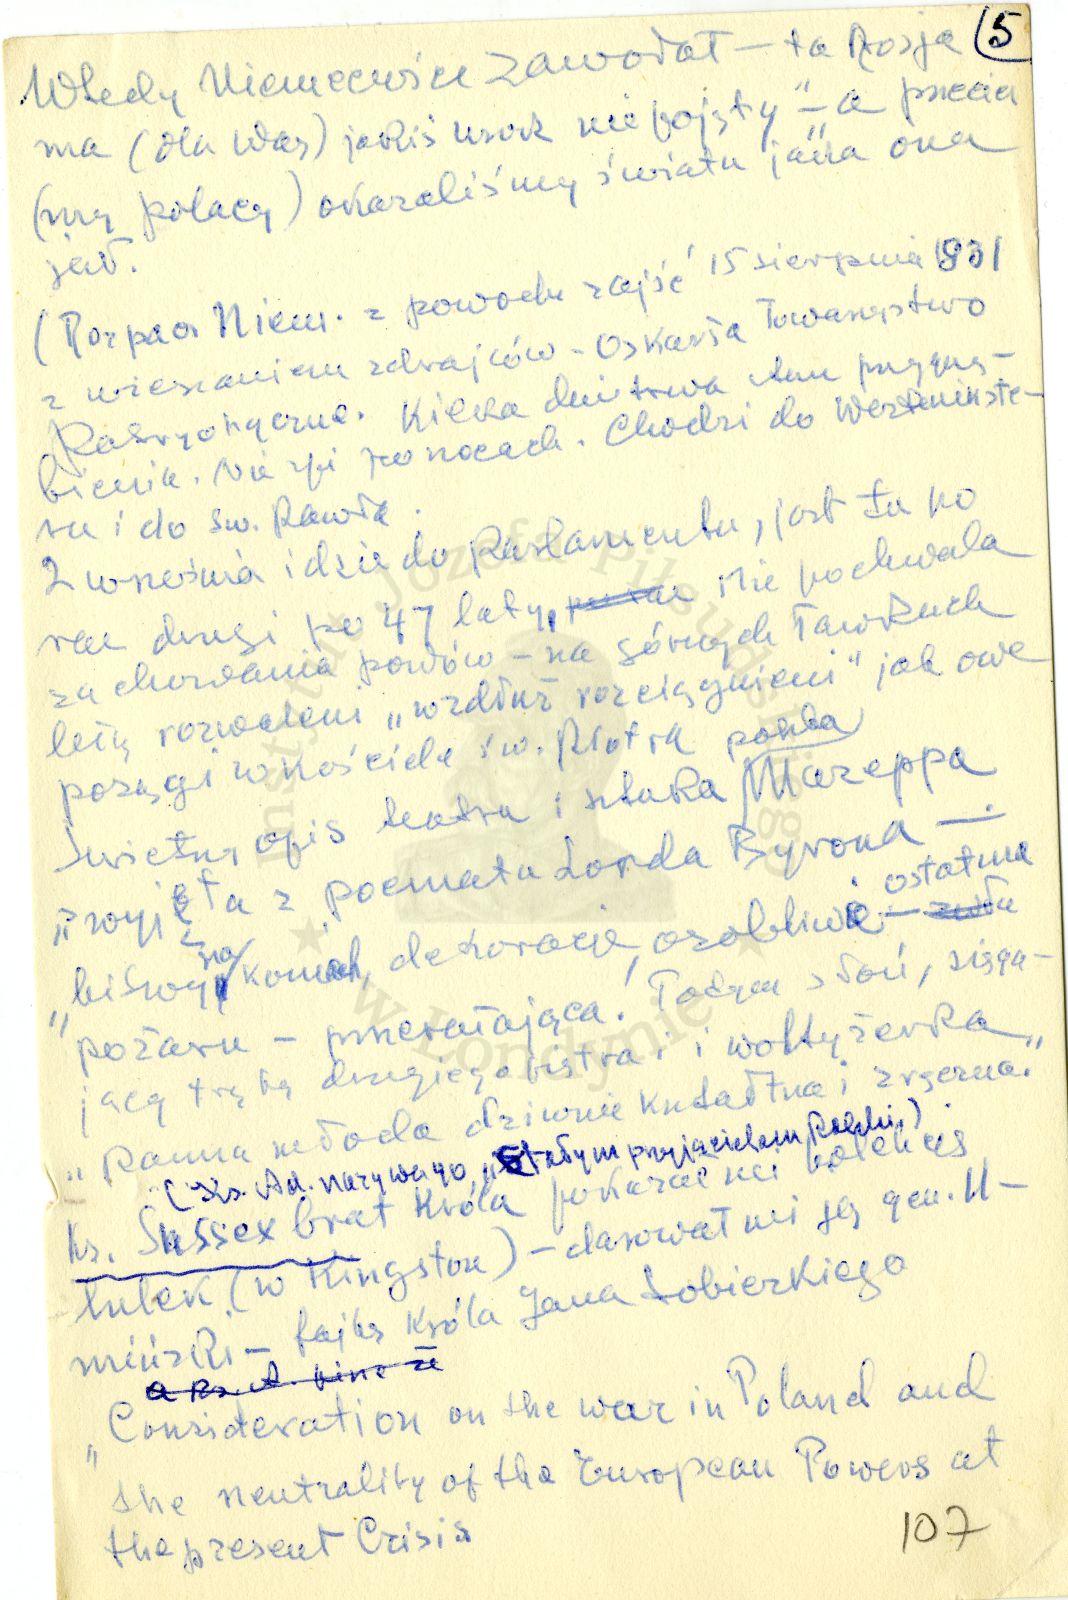 5
Wtedy Niemcewicz zawołał – ta Rosja
ma (dla Was) jakiś urok niepojęty" – a przecie
(my polacy) okazaliśmy światu jaka ona
jest.
(Rozpacz Niem. z powodu zajść 15 sierpnia 1831
z wieszaniem zdrajców – Oskarża Towarzystwo
Patryotyczne. Kilka dni trwa stan przygnę-
bienia. Nie śpi po nocach. Chodzi do Westminste-
ru i do św. Pawła.
2 września idzie do parlamentu, jest tu po
raz drugi po 47 laty, Nie pochwala
zachowania posłów – na górnych ławkach
leżą rozwaleni „wzdłuż rozciągnieni" jak owe
posągi w kościele św. Piotra
Świetny opis teatru i sztuka polska Mazeppa
„zwyjęta z poematu Lorda Byrona —
„biswy na koniach, dekoracje, osobliwie – ostatnia
pożaru – przerażająca. Potym słoń, sięga-
jący trąbą drugiego piętra i woltyżerka
„Panna młoda dziwnie kształtna i zręczna."
(Ks. Ad. nazywa go „Stałym przyjacielem Polski")
Ks. Sussex brat Króla pokazać mi
tutek (w Kingston) – darował mi ją gen. U-
miński – fajkę Króla Jana Sobieskiego
a Ks. A.
„Consideration on the war in Poland and
the neutrality of the European Powers at
the present Crisis
107
Instytut Józefa Piłsudskiego
w Londynie